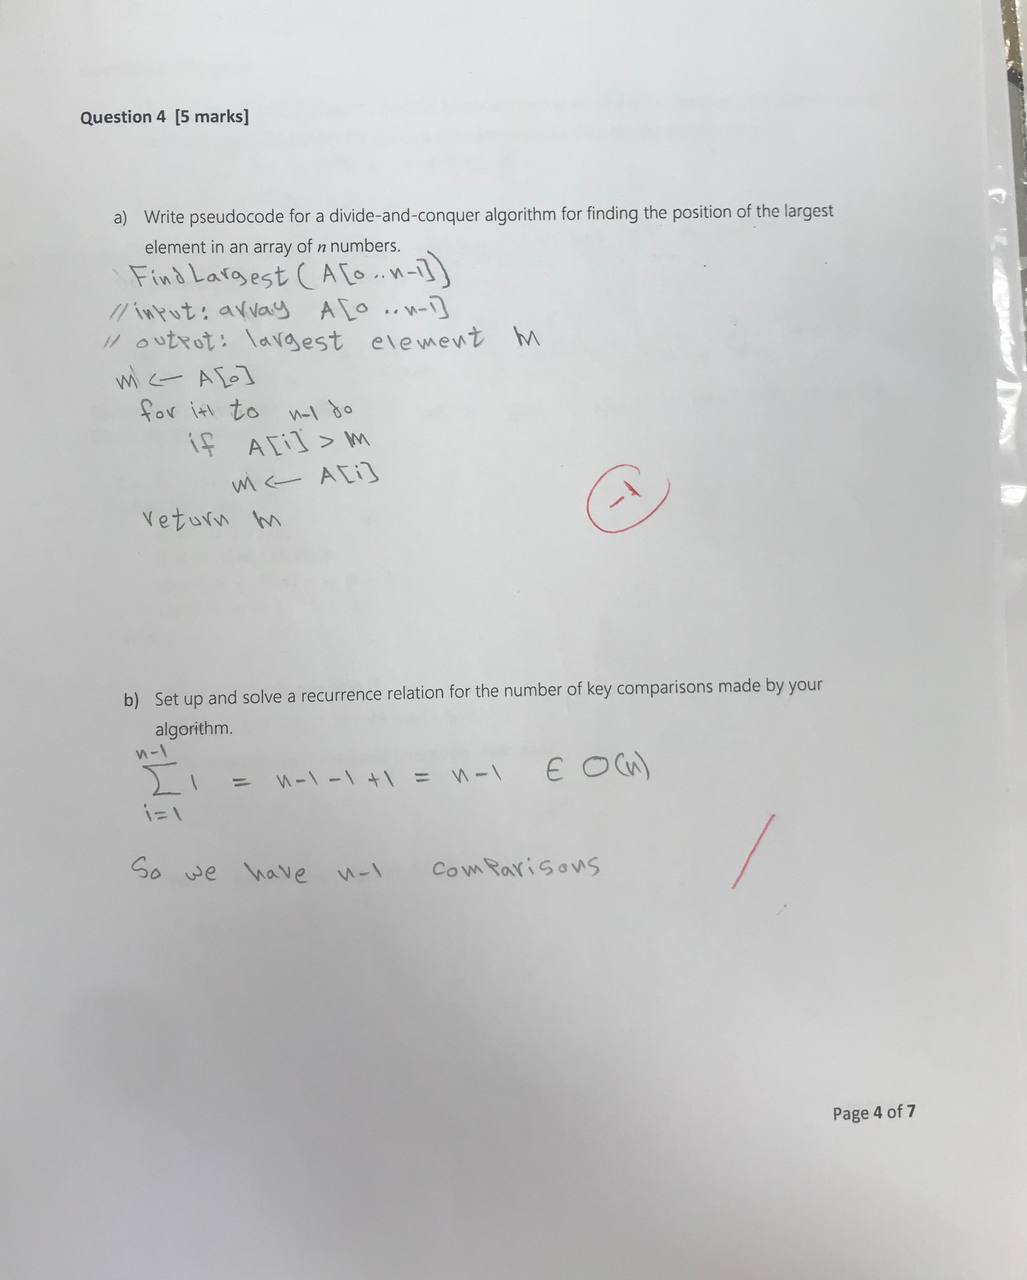 Question 4 [5 marks]
a) Write pseudocode for a divide-and-conquer algorithm for finding the position of the largest
element in an array of n numbers.
Find Largest ( A[0 .. n-1])
// input: array A[0 .. n-1]
// output: largest element m
m ← A[0]
for i+1 to n-1 do
if A[i] > m
m ← A[i]
return m
-1
b) Set up and solve a recurrence relation for the number of key comparisons made by your
algorithm.
n-1
∑ 1 = n-1-1+1 = n-1 ∈ O(n)
i=1
So we have n-1 comparisons
Page 4 of 7